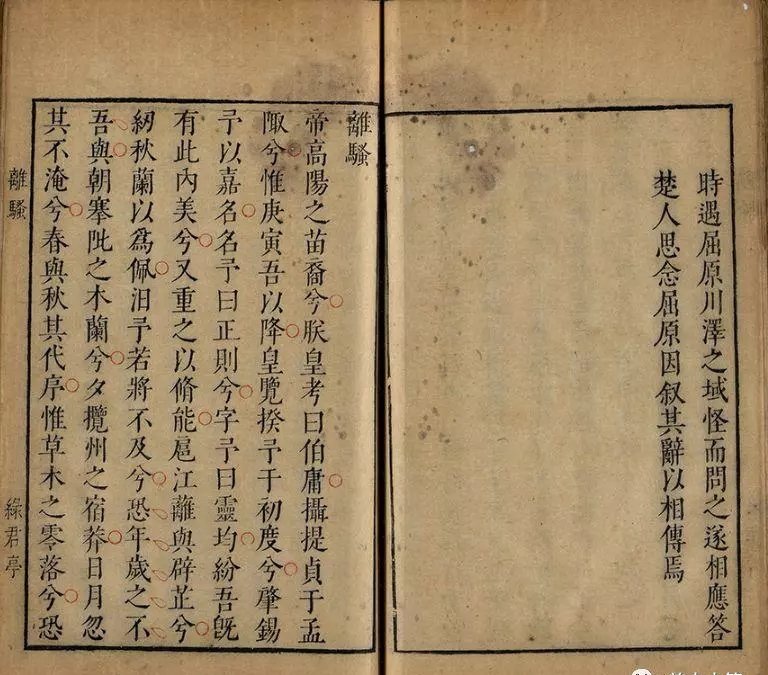 時遇屈原川澤之域怪而問之遂相應答
楚人思念屈原因叙其辭以相傳焉
離騷
帝高陽之苗裔兮朕皇考曰伯庸攝提貞于孟
陬兮惟庚寅吾以降皇覽揆予于初度兮肇錫
予以嘉名名予曰正則兮字予曰靈均紛吾旣
有此內美兮又重之以脩能扈江蘺與辟芷兮
紉秋蘭以爲佩汨予若將不及兮恐年歲之不
吾與朝搴阰之木蘭兮夕攬州之宿莽日月忽
其不淹兮春與秋其代序惟草木之零落兮恐
離騷
綠君亭